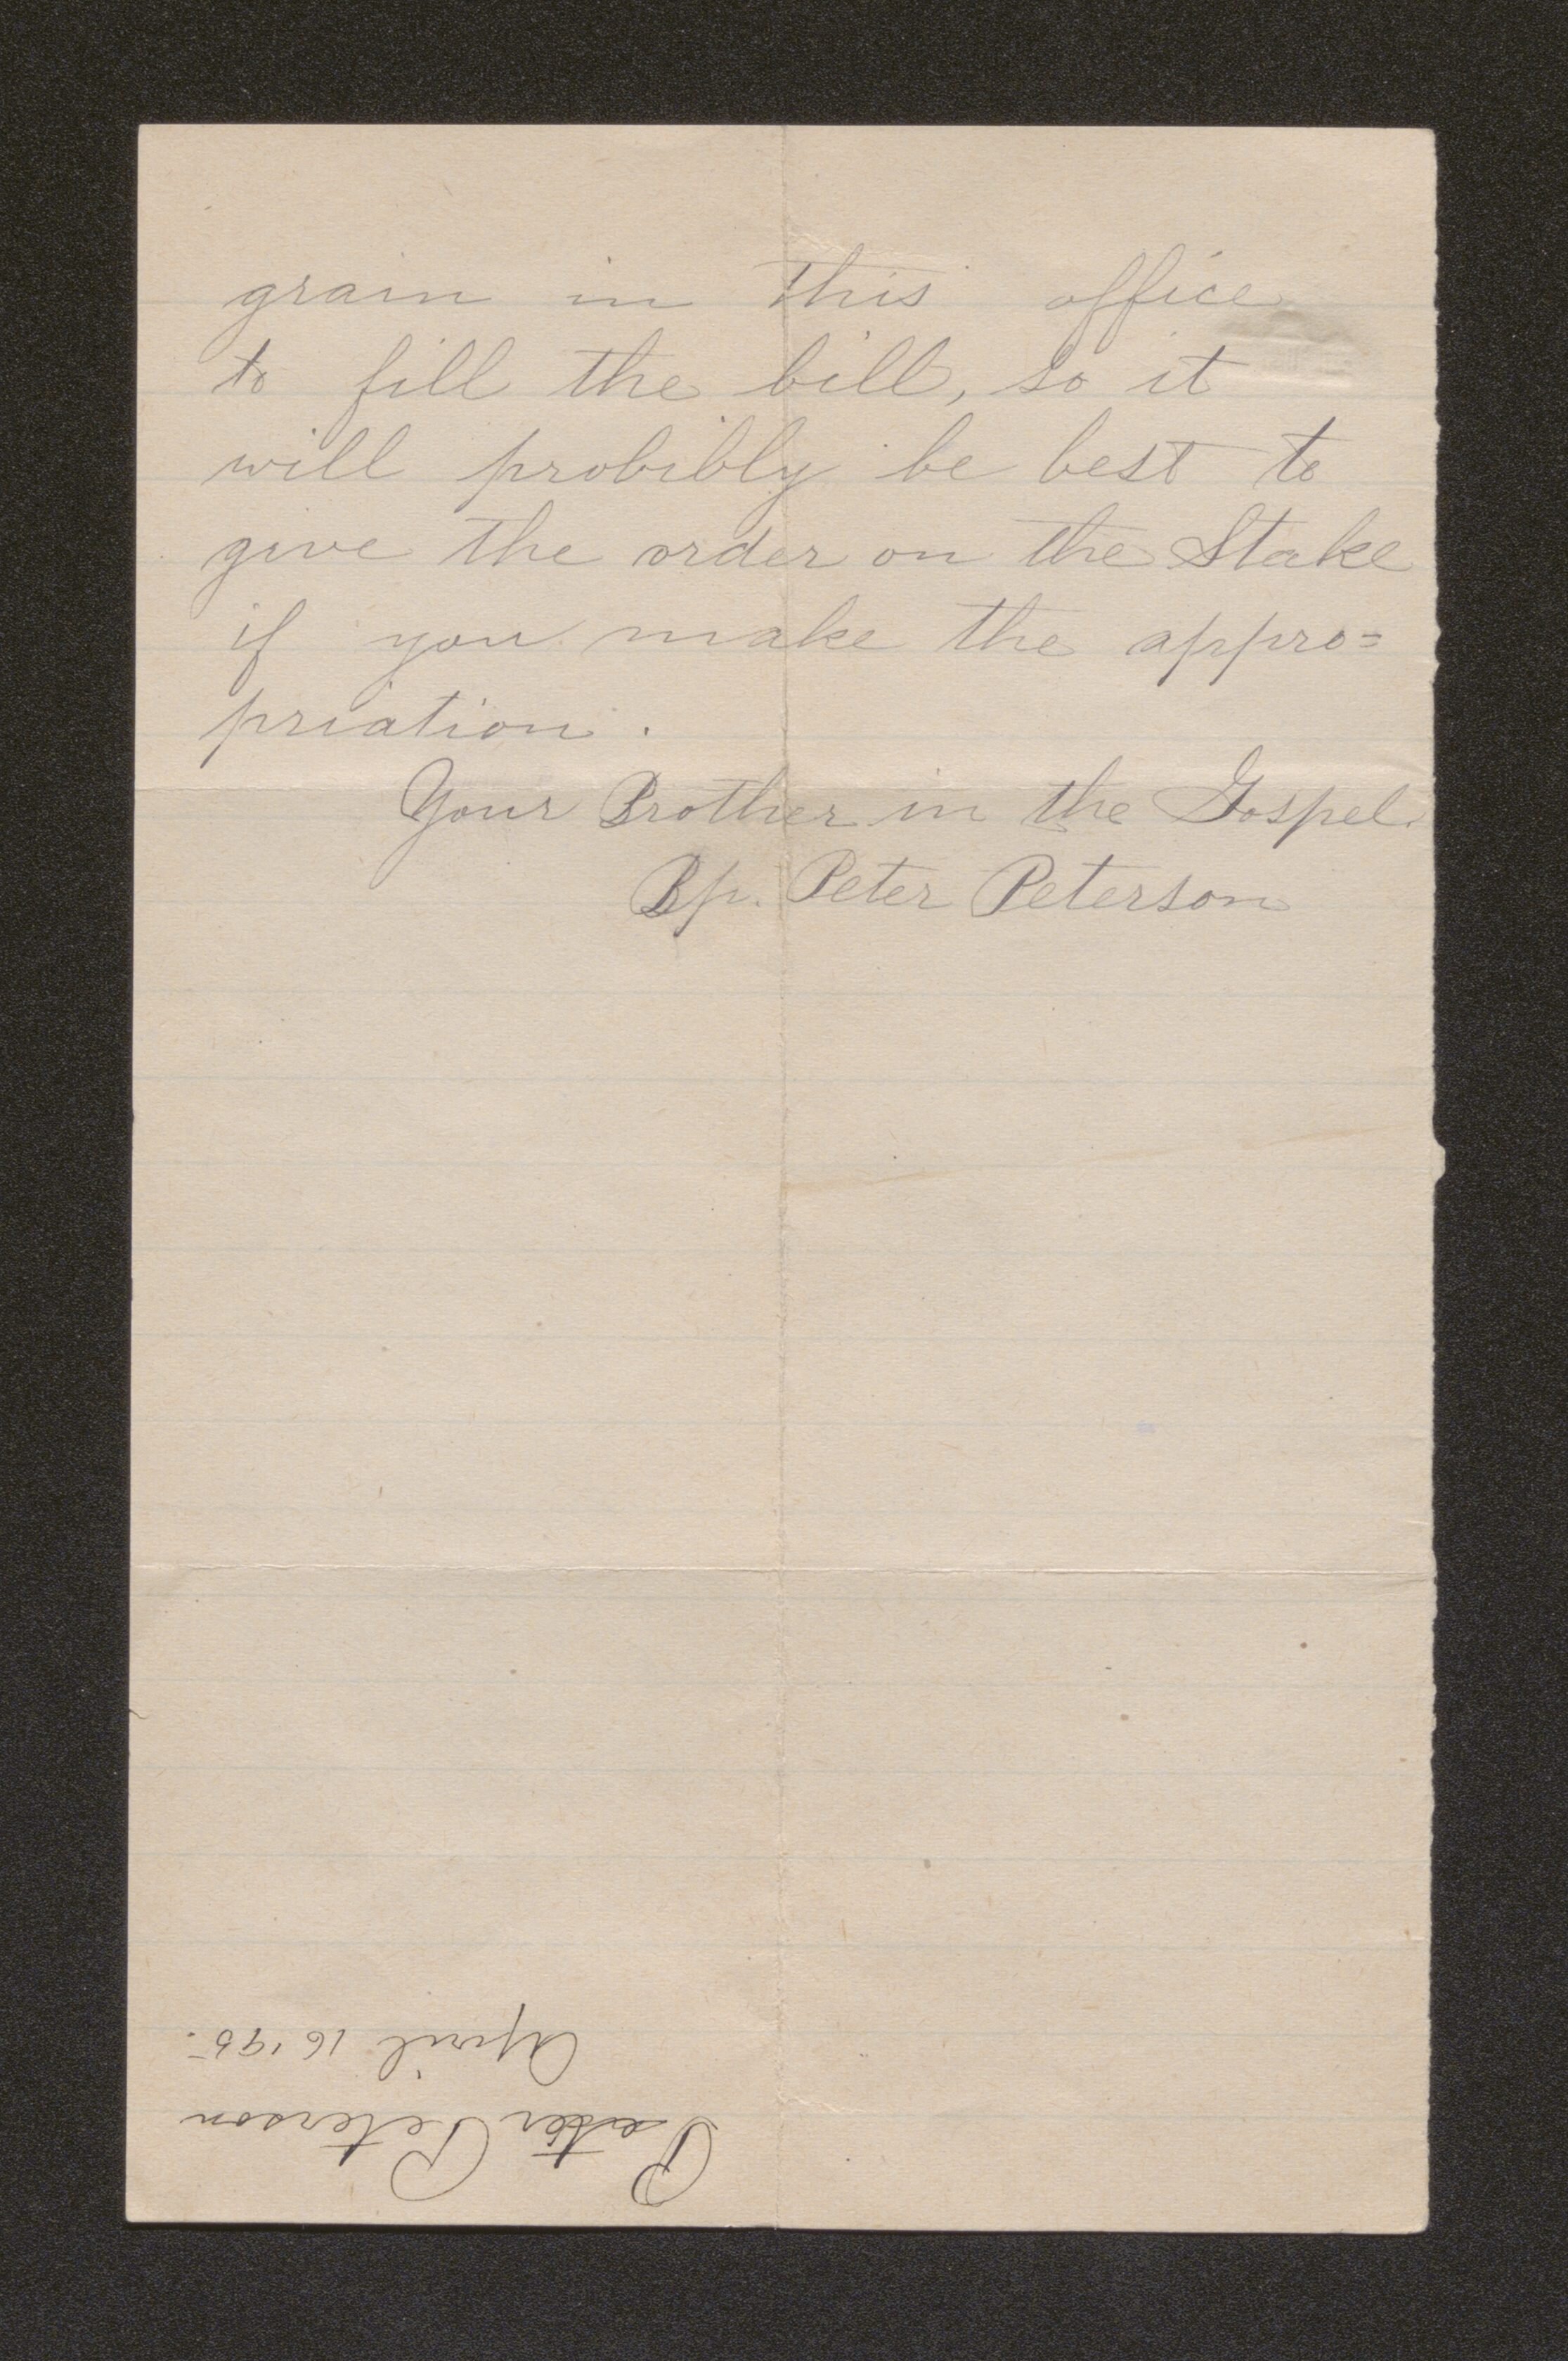 grain in this office
to fill the bill, so it
will probibly be best to
give the order on the Stake
if you make the appro=
priation.
Your Brother in the Gospel.
Bp. Peter Peterson
Peter Peterson
April 16 '95.